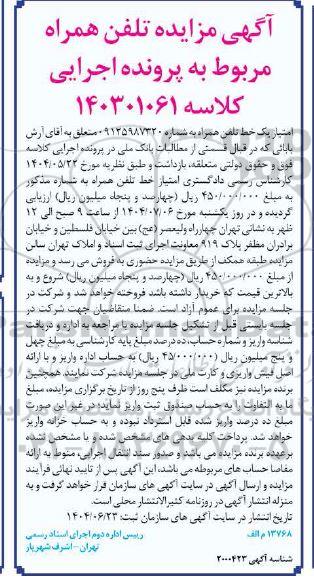 آگهی مزایده تلفن همراه
مربوط به پرونده اجرایی
کلاسه ۱۴۰۳۰۱۰۶۱
امتیاز یک خط تلفن همراه به شماره ۰۹۱۲۵۹۸۷۳۲۰ متعلق به آقای آرش
بابائی که در قبال قسمتی از مطالبات بانک ملی در پرونده اجرایی کلاسه
فوق و حقوق دولتی متعلقه، بازداشت و طبق نظریه مورخ ۱۴۰۴/۰۵/۲۲
کارشناس رسمی دادگستری امتیاز خط تلفن همراه به شماره مذکور
به مبلغ ۴۵۰/۰۰۰/۰۰۰ ریال (چهارصد و پنجاه میلیون ریال) ارزیابی
گردیده و در روز یکشنبه مورخ ۱۴۰۴/۰۷/۰۶ از ساعت ۹ صبح الی ۱۲
ظهر به نشانی تهران چهارراه ولیعصر (عج) بین خیابان فلسطین و خیابان
برادران مظفر پلاک ۹۱۹ معاونت اجرای ثبت اسناد و املاک تهران سالن
مزایده طبقه همکف از طریق مزایده حضوری به فروش می رسد و مزایده
از مبلغ ۴۵۰/۰۰۰/۰۰۰ ریال (چهارصد و پنجاه میلیون ریال) شروع و به
بالاترین قیمت که خریدار داشته باشد فروخته خواهد شد و شرکت در
جلسه مزایده برای عموم آزاد است. ضمنا متقاضیان جهت شرکت در
جلسه بایستی قبل از تشکیل جلسه مزایده با مراجعه به اداره و دریافت
شناسه واریز و شماره حساب، ده درصد مبلغ پایه کارشناسی به مبلغ چهل
و پنج میلیون ریال (۴۵/۰۰۰/۰۰۰ ریال) به حساب اداره واریز و با ارائه
اصل فیش واریزی و کارت ملی در جلسه مزایده شرکت نمایند. همچنین
برنده مزایده نیز مکلف است ظرف پنج روز از تاریخ برگزاری مزایده، مبلغ
ما به التفاوت را به حساب صندوق ثبت واریز نماید؛ در غیر این صورت
مبلغ ده درصد واریز شده قابل استرداد نبوده و به حساب خزانه واریز
خواهد شد. پرداخت کلیه بدهی های مشخص شده و یا مشخص نشده
برعهده برنده مزایده می باشد و صدور سند انتقال اجرایی، منوط به ارائه
مفاصا حساب های مربوطه می باشد، این آگهی پس از تایید نهائی فرآیند
مزایده و ارسال آگهی در سایت آگهی های سازمان قرار خواهد گرفت و به
منزله انتشار آگهی در روزنامه کثیرالانتشار محلی است.
تاریخ انتشار در سایت آگهی های سازمان ثبت: ۱۴۰۴/۰۶/۲۳
۱۳۷۶۸ م الف رییس اداره دوم اجرای اسناد رسمی
تهران - اشرف شهریار
شناسه آگهی ۲۰۰۰۴۲۳